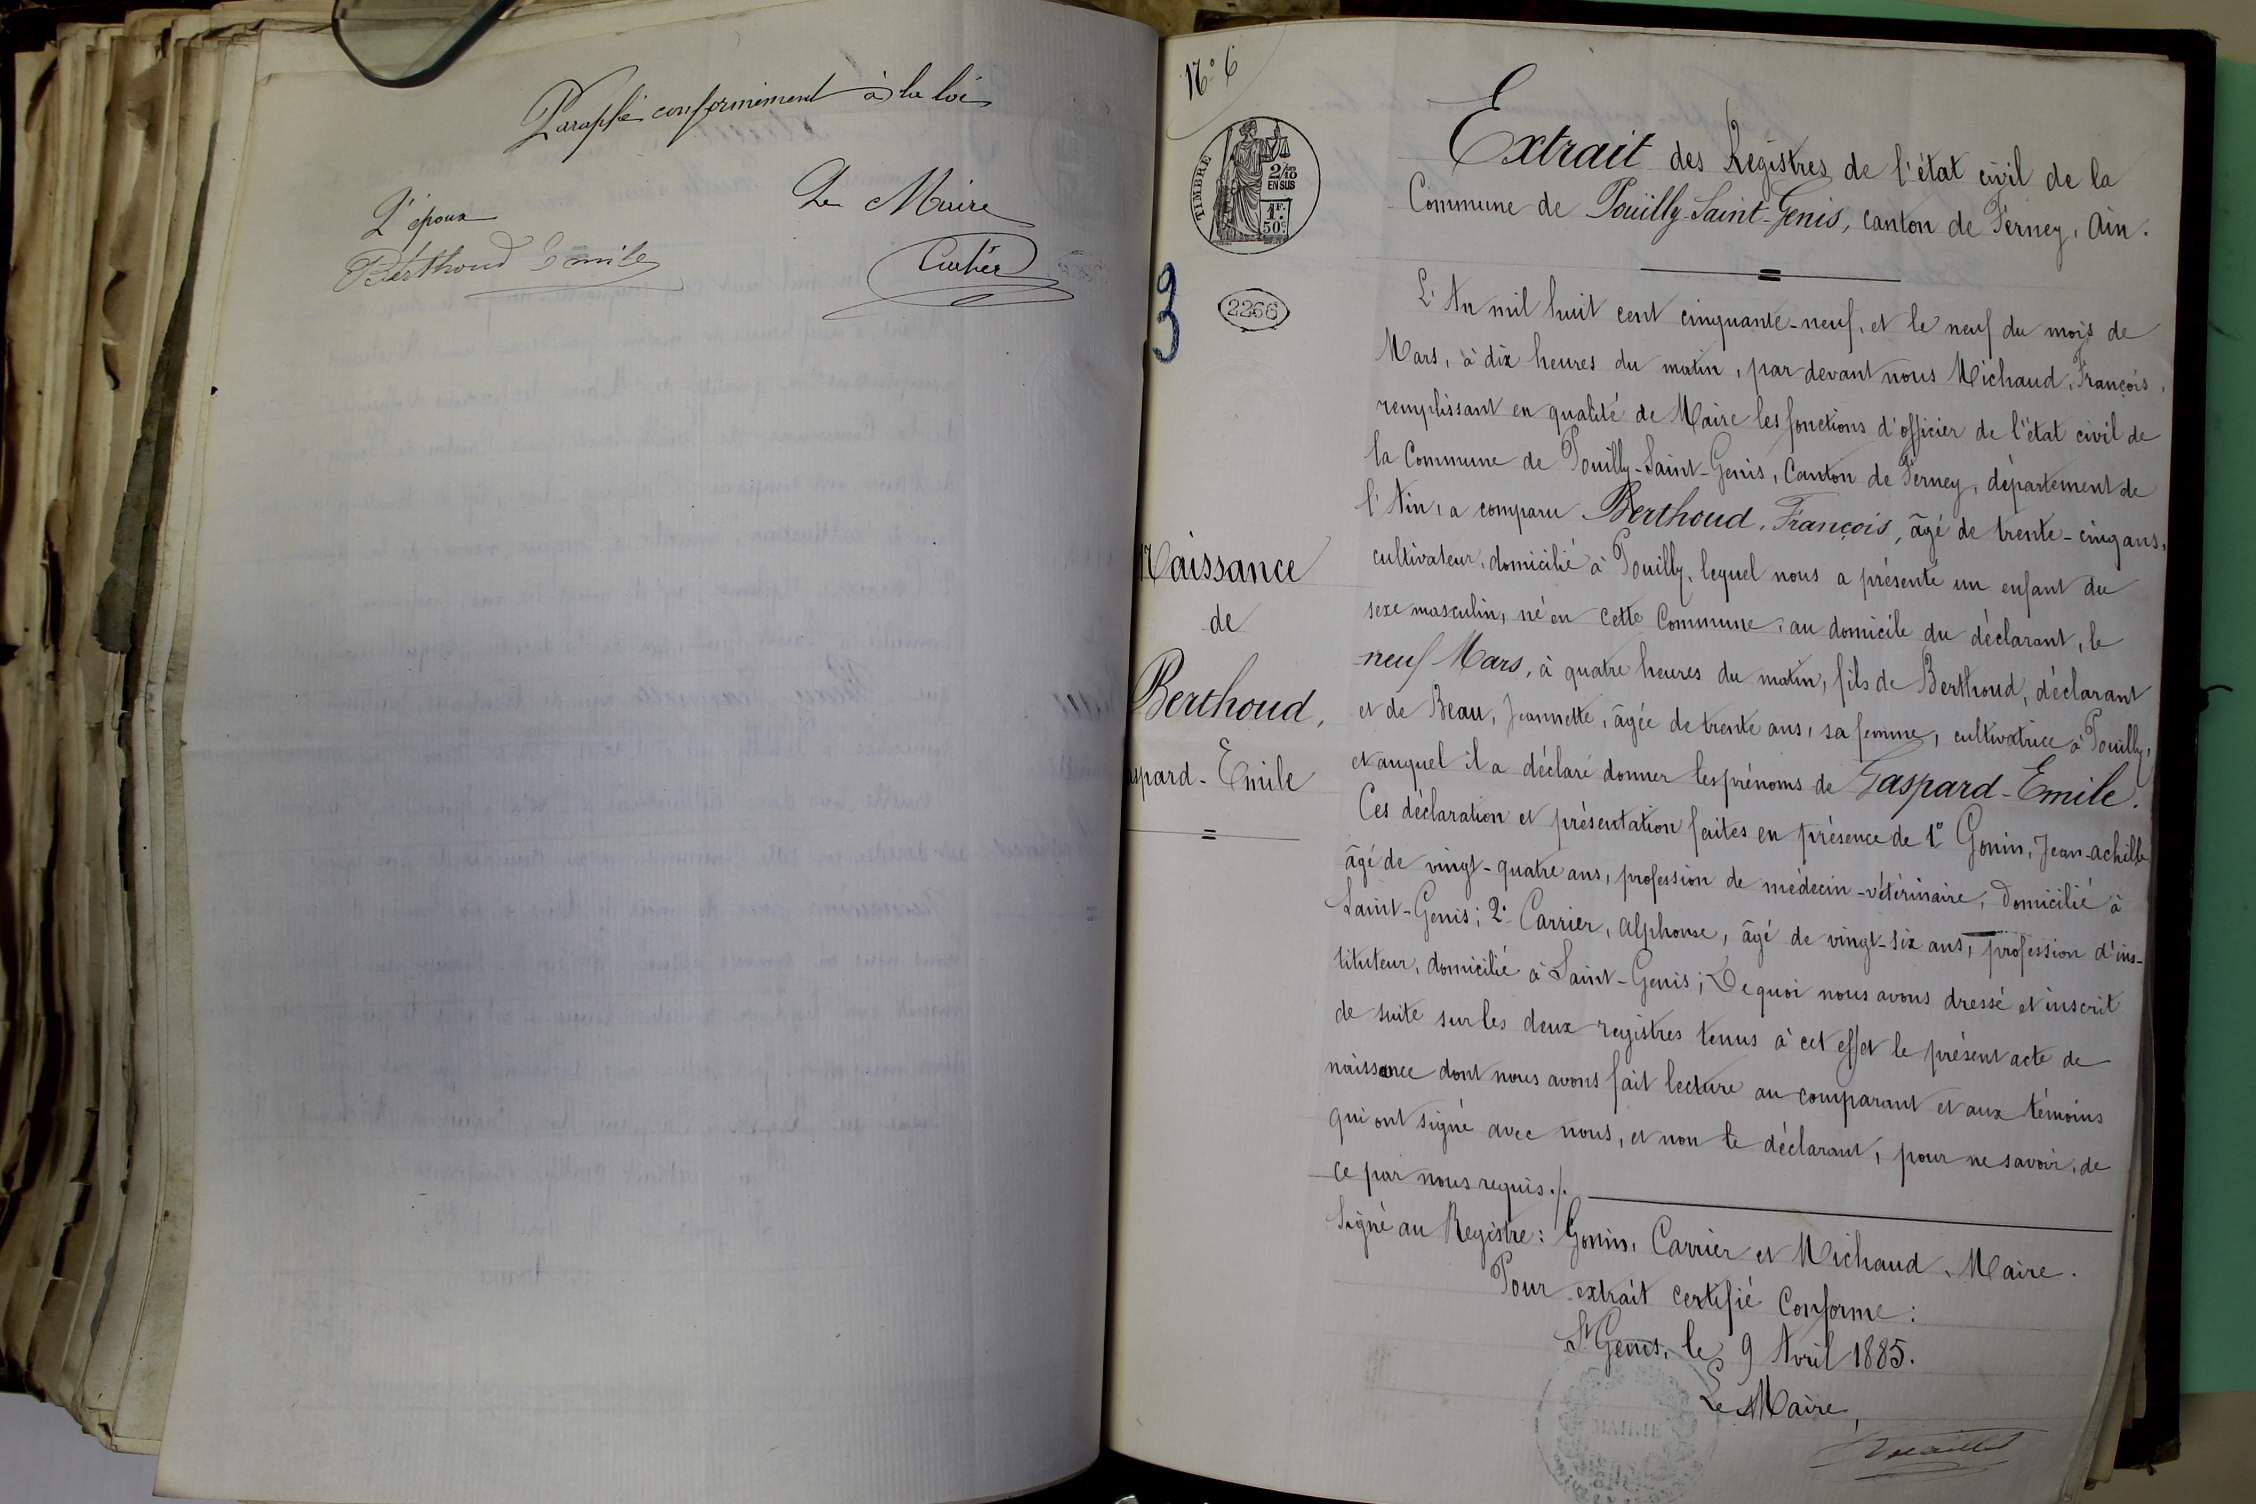 Paraphé conformément à la loi
L'époux
Le Maire
Berthoud Emile
N.° 6
TIMBRE
2/10
EN SUS
1F.
50c
3
2266
Naissance
de
Berthoud,
aspard-Emile
Extrait des Registres de l'état civil de la
Commune de Pouilly-Saint-Genis, canton de Ferney, Ain.
L'An mil huit cent cinquante-neuf, et le neuf du mois de
Mars, à dix heures du matin, par devant nous Michaud, François,
remplissant en qualité de Maire les fonctions d'officier de l'état civil de
la Commune de Pouilly-Saint-Genis, Canton de Ferney, département de
l'Ain, a comparu Berthoud, François, âgé de trente-cinq ans,
cultivateur, domicilié à Pouilly, lequel nous a présenté un enfant du
sexe masculin, né en cette Commune, au domicile du déclarant, le
neuf Mars, à quatre heures du matin, fils de Berthoud, déclarant
et de Beau, Jeannette, âgée de trente ans, sa femme, cultivatrice à Pouilly,
et auquel il a déclaré donner les prénoms de Gaspard-Emile.
Ces déclaration et présentation faites en présence de 1° Gonin, Jean-achille
âgé de vingt-quatre ans, profession de médecin-vétérinaire, domicilié à
Saint-Genis; 2° Carrier, Alphonse, âgé de vingt-six ans, profession d'ins-
tituteur, domicilié à Saint-Genis; De quoi nous avons dressé et inscrit
de suite sur les deux registres tenus à cet effet le présent acte de
naissance dont nous avons fait lecture au comparant et aux témoins
qui ont signé avec nous, et non le déclarant, pour ne savoir, de
ce par nous requis./.
Signé au Registre: Gonin, Carrier et Michaud, Maire.
Pour extrait certifié Conforme:
St Genis, le 9 Avril 1885.
Le Maire,
MAIRIE